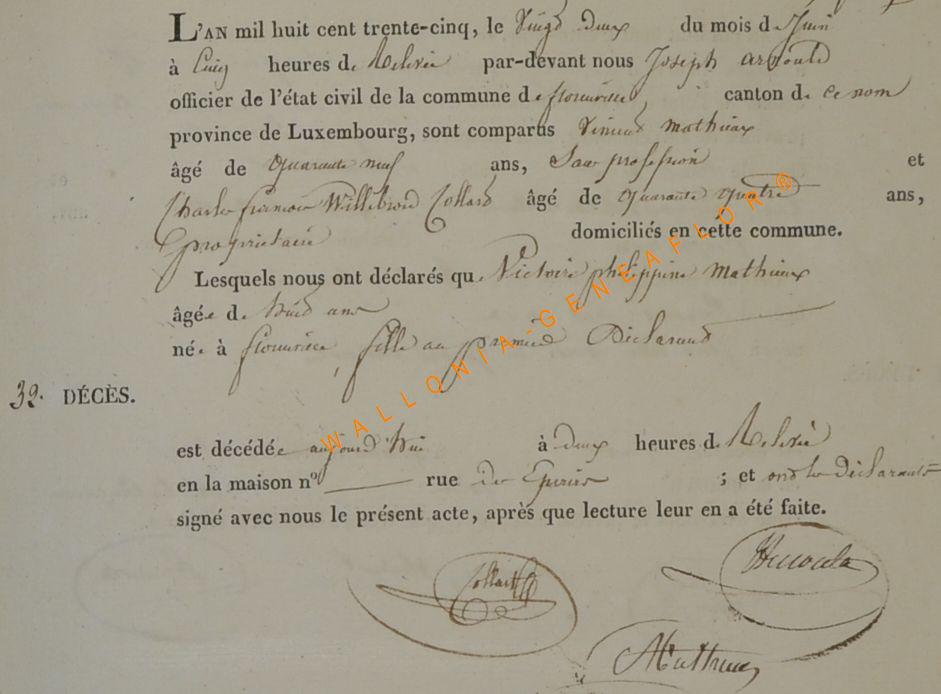 L'AN mil huit cent trente-cinq, le Vingt deux du mois de Juin
à Cinq heures de Relevée par-devant nous Joseph arnould
officier de l'état civil de la commune de florenville canton de ce nom
province de Luxembourg, sont comparus Vincent mathieux
âgé de quarante neuf ans, Sans profession et
Charles francois Willibrord Collard âgé de quarante quatre ans,
propriétaire domiciliés en cette commune.
Lesquels nous ont déclarés que Victoire philippine mathieux
âgée de huit ans
née à florenville, fille au premier Déclarant
32. DÉCÈS.
est décédée aujourd'hui à deux heures de Relevée
en la maison nº rue des ; et ont les Déclarants
signé avec nous le présent acte, après que lecture leur en a été faite.
Collard
Mathieux
WALLONIA-GENEAFLOR ®